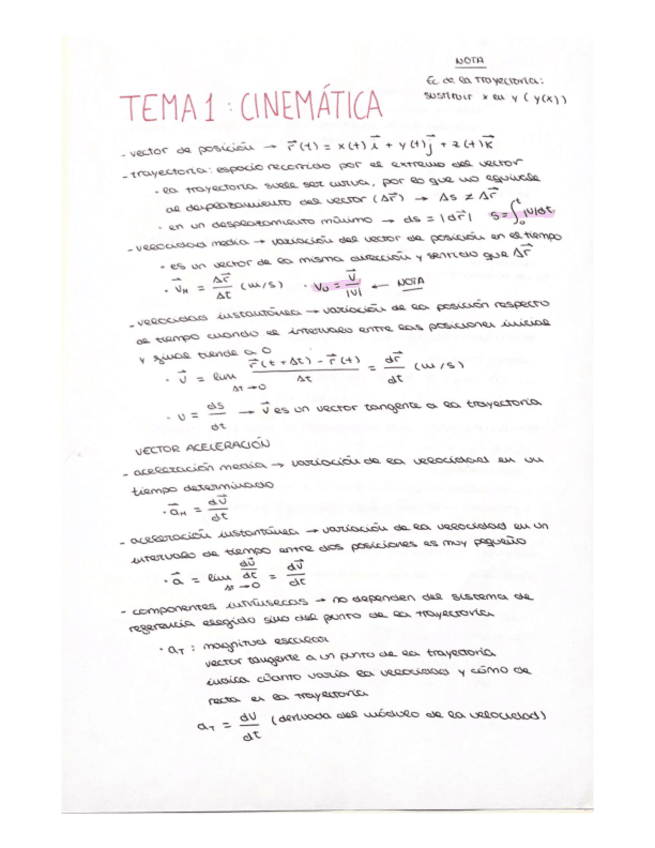 NOTA
Ec de la trayectoria:
sustituir x en y ( y(x))
TEMA 1 : CINEMÁTICA
- vector de posición → r⃗(t) = x(t) i⃗ + y(t) j⃗ + z(t) k⃗
- trayectoria: espacio recorrido por el extremo del vector
· la trayectoria suele ser curva, por lo que no equivale
al desplazamiento del vector (Δr⃗) → Δs ≠ Δr⃗
· en un desplazamiento mínimo → ds = |dr⃗| s = ∫₀ᵗ |v|dt
- velocidad media → variación del vector de posición en el tiempo
· es un vector de la misma dirección y sentido que Δr⃗
· v⃗ₘ = Δr⃗/Δt (m/s) · Vᵤ = v⃗/|v| ← NOTA
- velocidad instantánea → variación de la posición respecto
al tiempo cuando el intervalo entre las posiciones inicial
y final tiende a 0
· v⃗ = lim Δt→0 r⃗(t + Δt) - r⃗(t)/Δt = dr⃗/dt (m/s)
· v = ds/dt → v⃗ es un vector tangente a la trayectoria
VECTOR ACELERACIÓN
- aceleración media → variación de la velocidad en un
tiempo determinado
· a⃗ₘ = dv⃗/dt
- aceleración instantánea → variación de la velocidad en un
intervalo de tiempo entre dos posiciones es muy pequeño
· a⃗ = lim Δt→0 dv⃗/dt = dv⃗/dt
- componentes intrínsecas → no dependen del sistema de
referencia elegido sino del punto de la trayectoria
· aT : magnitud escalar
vector tangente a un punto de la trayectoria
indica cuánto varía la velocidad y cómo de
recta es la trayectoria
aT = dv/dt (derivada del módulo de la velocidad)